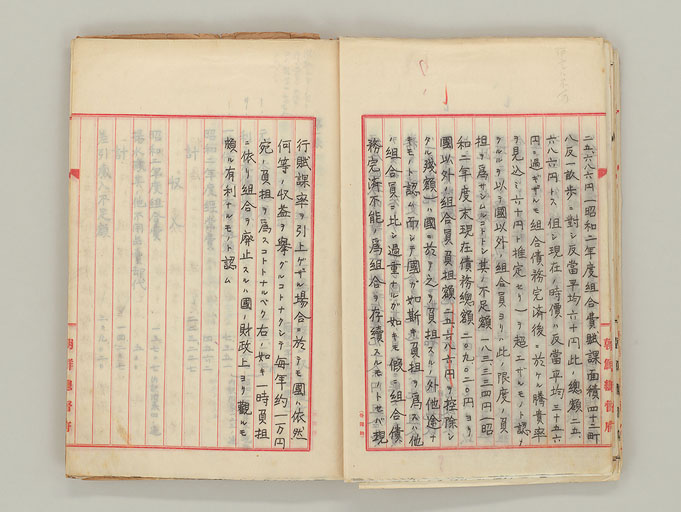 二五六八六円(昭和二年度組合費賦課面積四十二町
八反一畝歩ニ對シ反當平均六十円此ノ總額二五、
六八六円トス但シ現在ノ時價ハ反當平均三十五六
円ニ過ギザルモ組合債務完済後ニ於ケル騰貴率
ヲ見込ミ六十円ト推定セリ)ヲ超エサルモノト認メ
ラルルヲ以テ國以外ノ組合員ヨリハ此ノ限度ノ負
担ヲ為サシムルコトトシ其ノ不足額一八三三三四円(昭
和二年度末現在債務總額二〇九〇二〇円ヨリ
國以外ノ組合員負担額二五六八六円ヲ控除シ
タル残額)ハ國ニ於テ之ヲ負担スルノ外他途ナ
キモノト認ム而シテ國ガ如斯キ負担ヲ為スハ他
ノ組合員ニ比シ過重ナルガ如キモ假ニ組合債
務完済不能ノ為組合ヲ存續スルモノトセバ現
行賦課率ヲ引上ゲザル場合ニ於テモ國ハ依然
何等ノ収益ヲ舉グルコトナクシテ毎年約一万円
宛ノ負担ヲ為スコトトナルベク右ノ如キ一時負担
ニ依リ組合ヲ廃止スルハ國ノ財政上ヨリ觀ルモ
頗ル有利ナルモノト認ム
朝鮮總督府